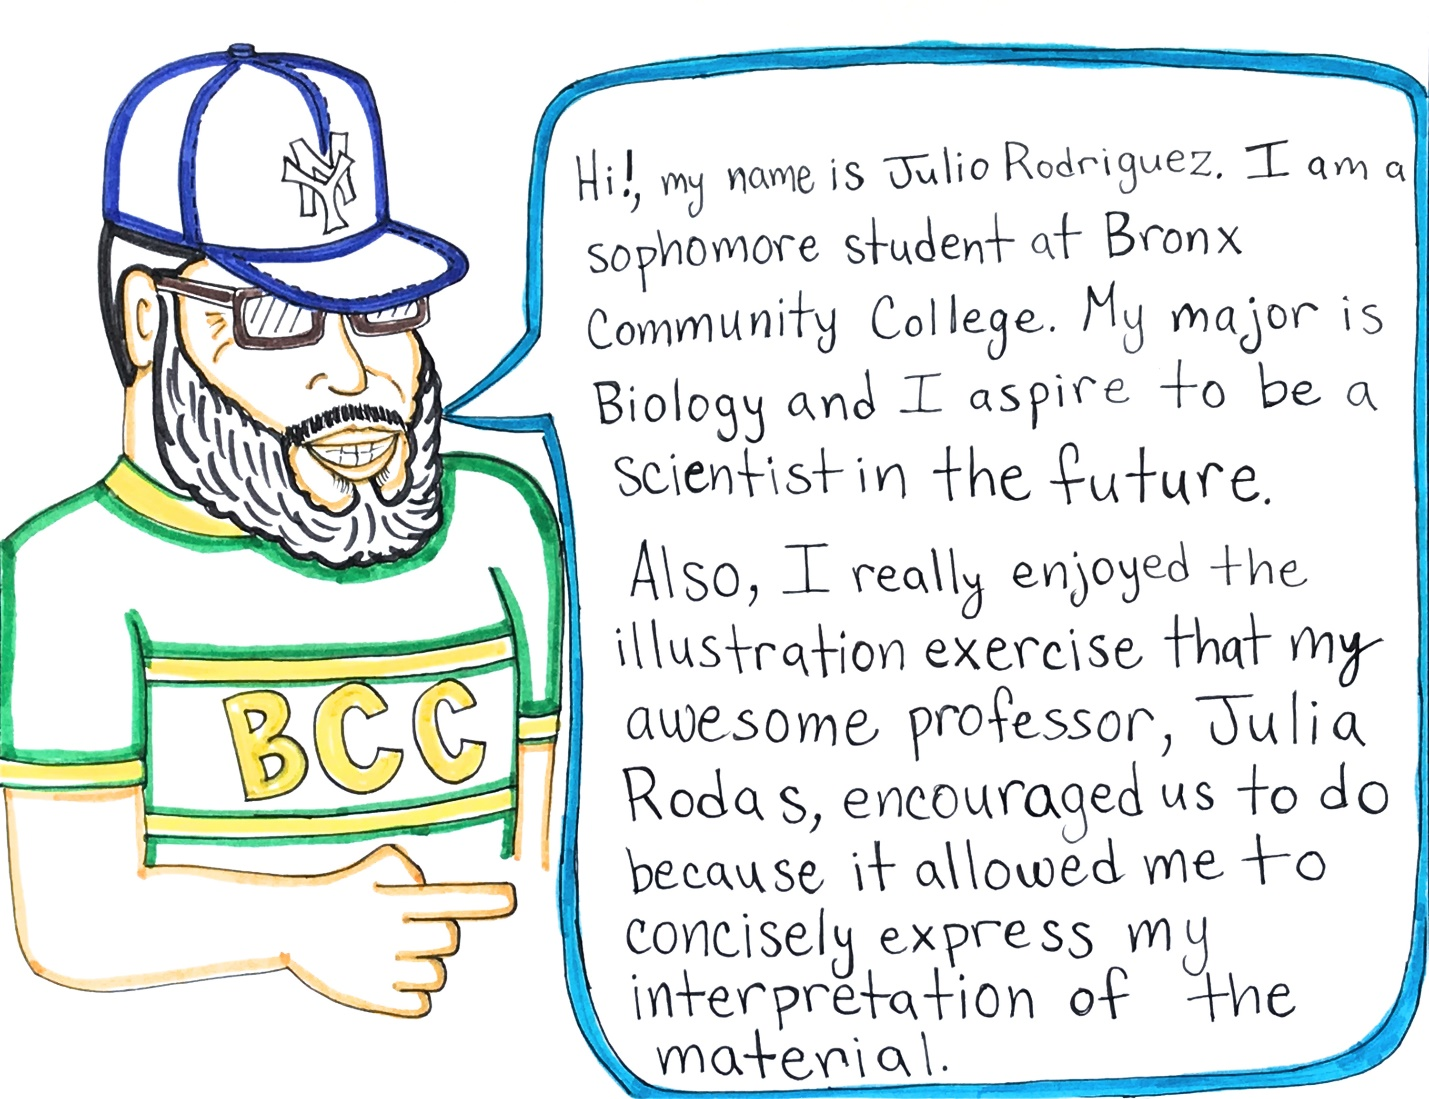 NY
Hi!, my name is Julio Rodriguez. I am a
sophomore student at Bronx
Community College. My major is
Biology and I aspire to be a
scientist in the future.
Also, I really enjoyed the
illustration exercise that my
awesome professor, Julia
Rodas, encouraged us to do
because it allowed me to
concisely express my
interpretation of the
material.
BCC